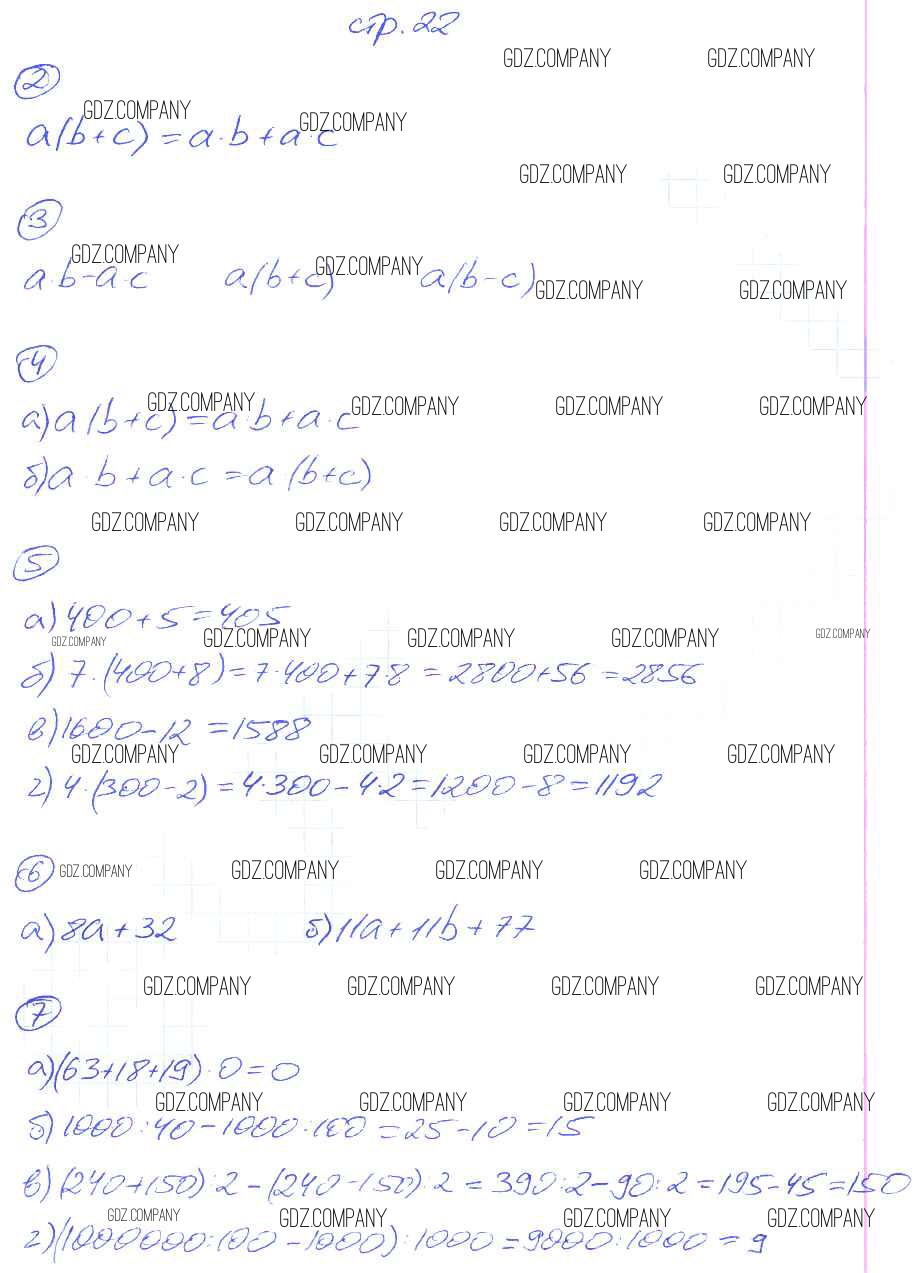 стр. 22
GDZ.COMPANY GDZ.COMPANY
2
GDZ.COMPANY GDZ.COMPANY
a(b+c) = a·b + a·c
GDZ.COMPANY GDZ.COMPANY
3
GDZ.COMPANY GDZ.COMPANY
a·b-a·c a(b+c) a(b-c)
GDZ.COMPANY GDZ.COMPANY
4
GDZ.COMPANY GDZ.COMPANY GDZ.COMPANY GDZ.COMPANY
а) a(b+c) = a·b + a·c
б) a·b + a·c = a(b+c)
GDZ.COMPANY GDZ.COMPANY GDZ.COMPANY GDZ.COMPANY
5
а) 400 + 5 = 405
GDZ.COMPANY GDZ.COMPANY GDZ.COMPANY GDZ.COMPANY GDZ.COMPANY
б) 7·(400+8) = 7·400 + 7·8 = 2800+56 = 2856
в) 1600-12 = 1588
GDZ.COMPANY GDZ.COMPANY GDZ.COMPANY GDZ.COMPANY
г) 4·(300-2) = 4·300 - 4·2 = 1200-8 = 1192
6 GDZ.COMPANY GDZ.COMPANY GDZ.COMPANY GDZ.COMPANY
а) 8a + 32 б) 11a + 11b + 77
GDZ.COMPANY GDZ.COMPANY GDZ.COMPANY GDZ.COMPANY
7
а) (63+18+19)·0 = 0
GDZ.COMPANY GDZ.COMPANY GDZ.COMPANY GDZ.COMPANY
б) 1000:40 - 1000:100 = 25-10 = 15
в) (240+150):2 - (240-150):2 = 390:2-90:2 = 195-45 = 150
GDZ.COMPANY GDZ.COMPANY GDZ.COMPANY GDZ.COMPANY
г) (1000000:100 - 1000):1000 = 9000:1000 = 9